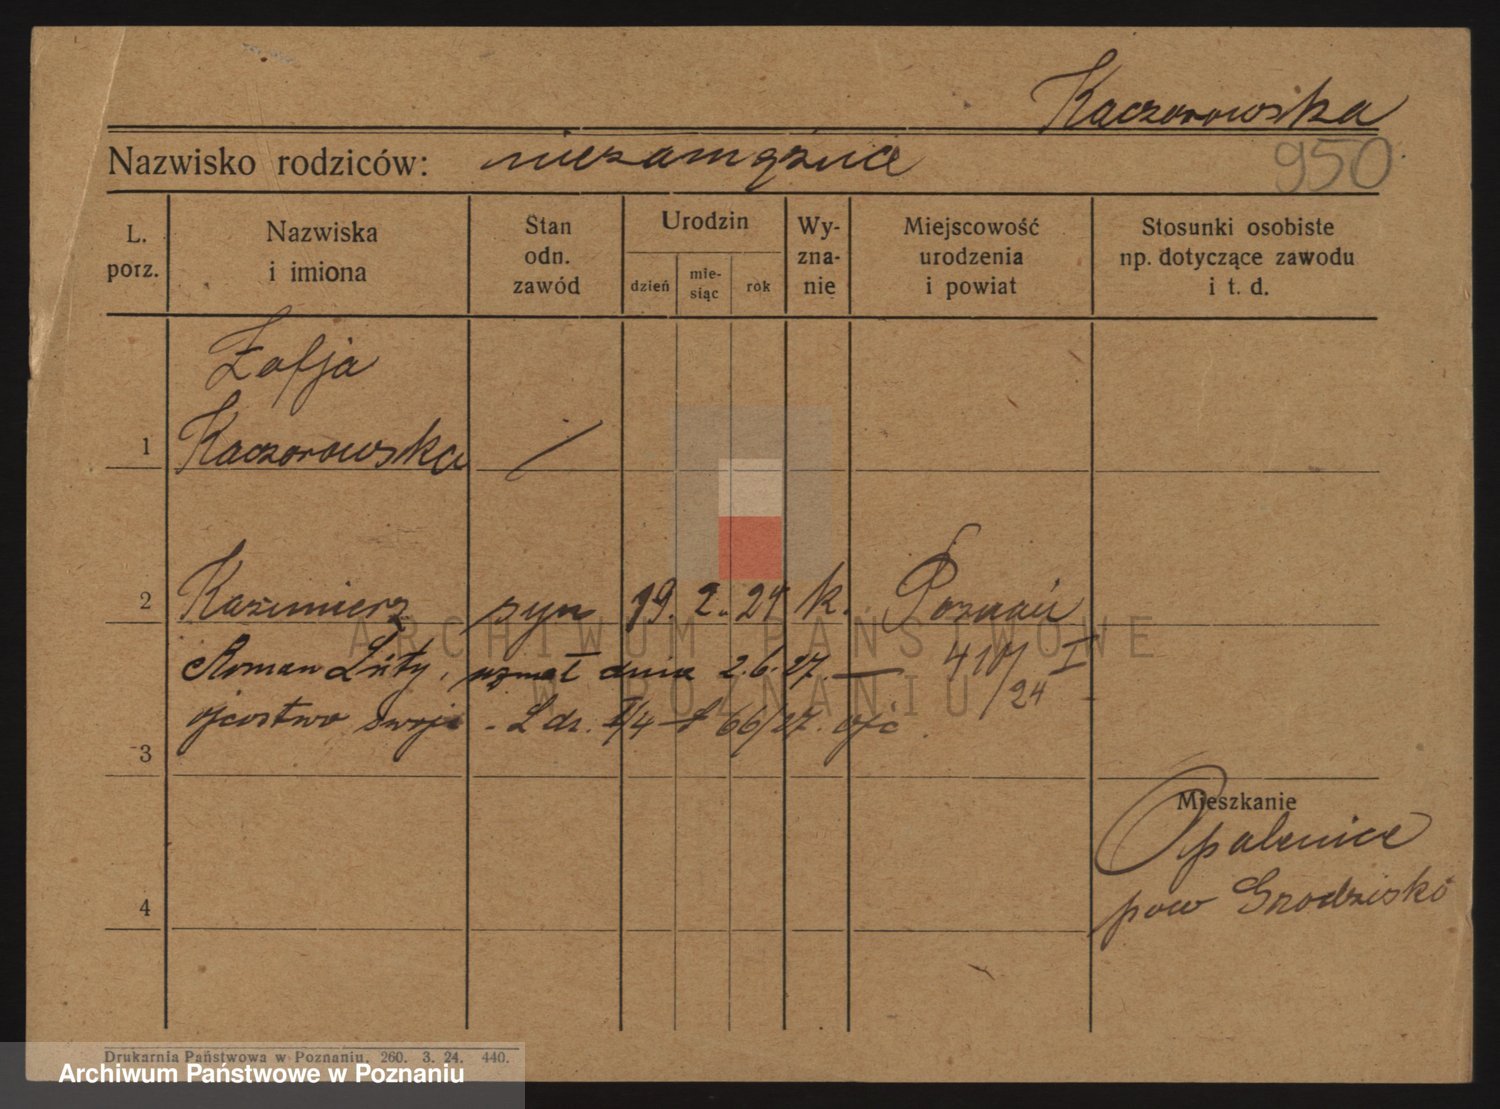 Kaczorowska
Nazwisko rodziców: niezamężnie
950
L. porz.
Nazwiska i imiona
Stan odn. zawód
Urodzin
dzień
mie-siąc
rok
Wy-zna-nie
Miejscowość urodzenia i powiat
Stosunki osobiste np. dotyczące zawodu i t. d.
Zofja
1 Kaczorowska
2 Kazimierz syn 19. 2. 24 k. Poznań
Roman Luty, uznał dnia 2.6.27. — 410/I
/24
ojcostwo swoje - L dz. I/4 66/27.
3
Mieszkanie
Opalenice
pow Grodzisko
4
ARCHIWUM PAŃSTWOWE
W POZNANIU
Drukarnia Państwowa w Poznaniu. 260. 3. 24. 440.
Archiwum Państwowe w Poznaniu